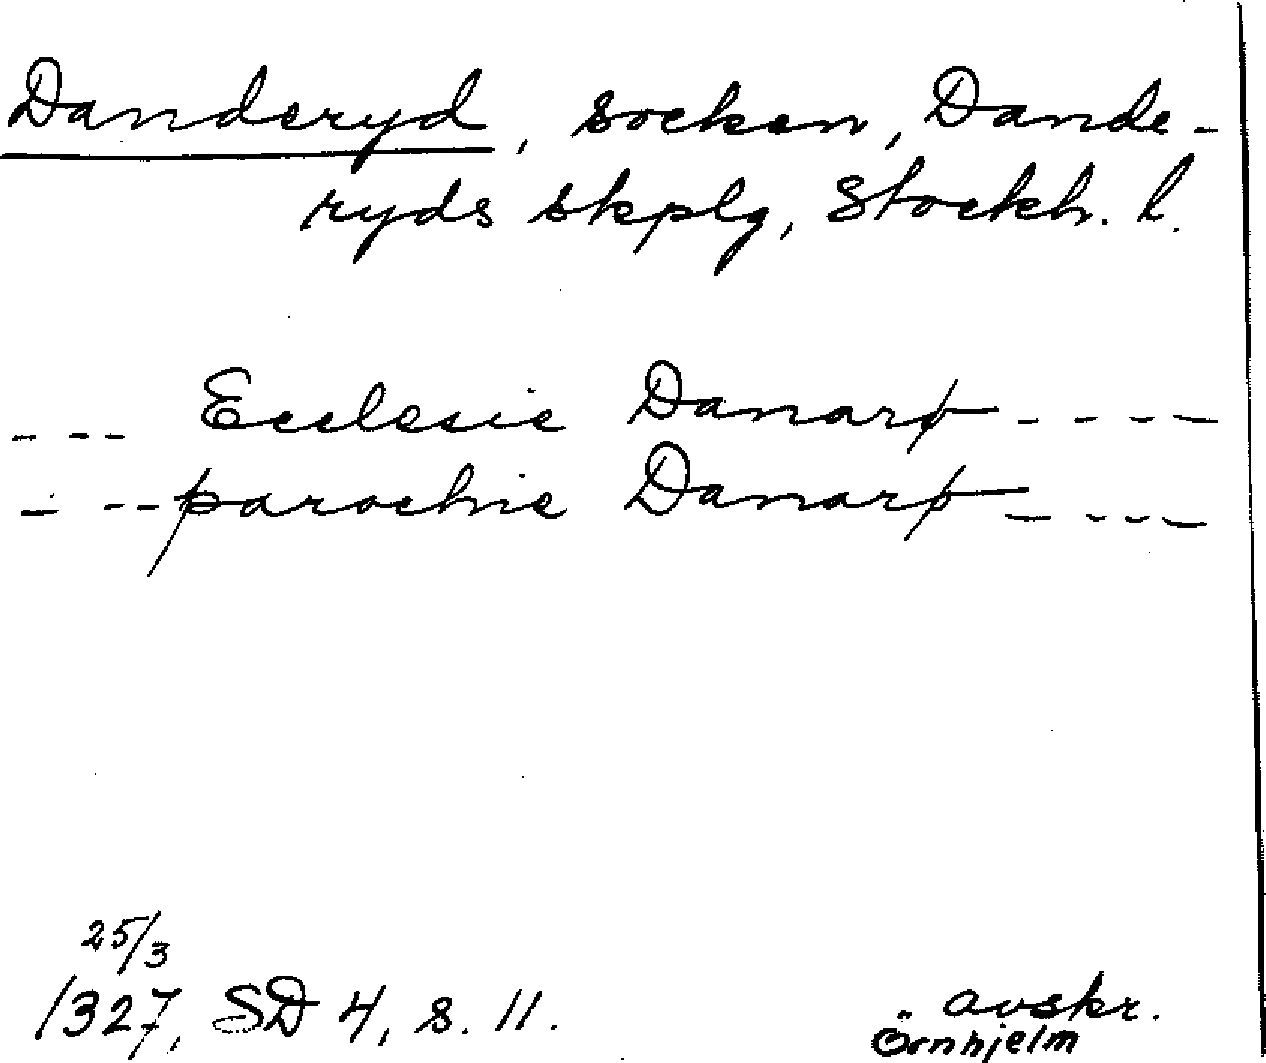 Danderyd, socken, Dande-
ryds skplg, Stockh. l.
--- Ecclesie Danarp ----
---parochie Danarp ----
25/3
1327, SD 4, s. 11.
avskr.
Örnhjelm